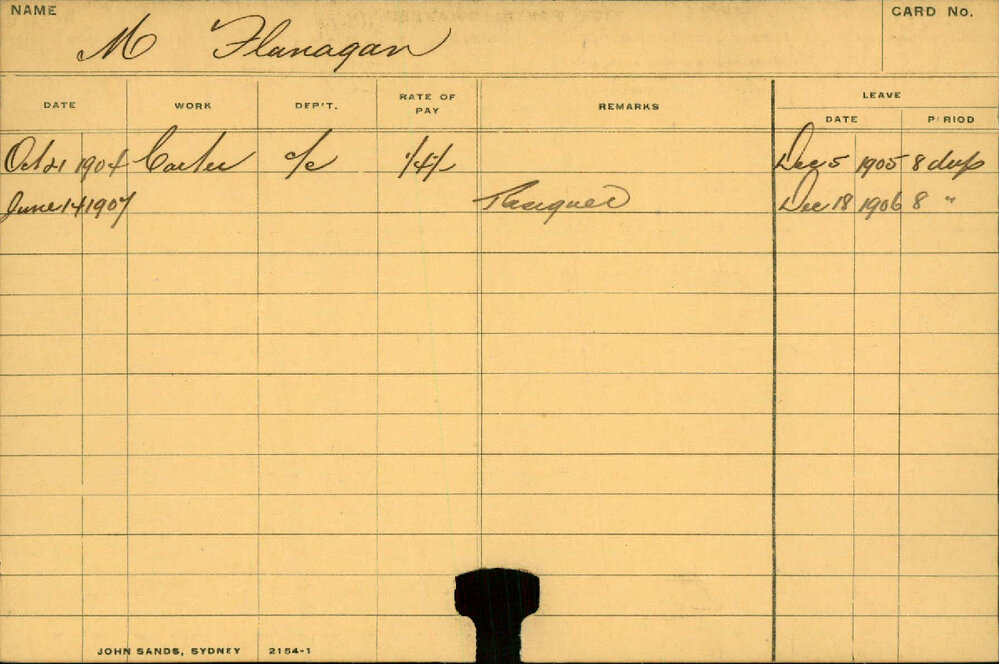 NAME CARD No.
M Flanagan
DATE WORK DEP'T. RATE OF PAY REMARKS LEAVE
DATE PERIOD
Oct 21 1904 Carter o/c Dec 5 1905 8 days
June 14 1907 Dec 18 1906 8 "
JOHN SANDS, SYDNEY 2154-1